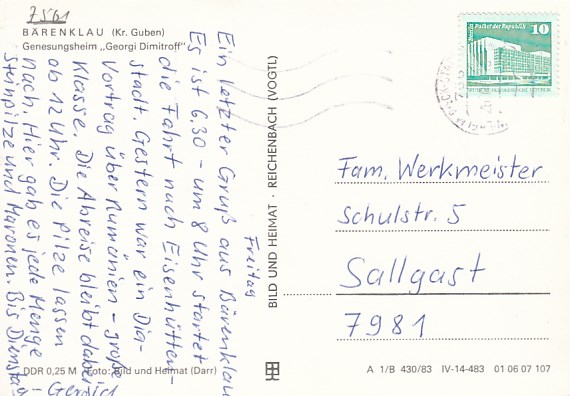 7561
BÄRENKLAU (Kr. Guben)
Genesungsheim „Georgi Dimitroff"
Freitag
Ein letzter Gruß aus Bärenklau
Es ist 6.30 - um 8 Uhr startet
die Fahrt nach Eisenhütten-
stadt. Gestern war ein Dia-
Vortrag über Rumänien - große
Klasse. Die Abreise bleibt dabei
ob 12 Uhr. Die Pilze lassen
nach. Hier gab es jede Menge
Steinpilze und Maronen. Bis Dienstag
BILD UND HEIMAT · REICHENBACH (VOGTL)
10
Palast der Republik
Fam. Werkmeister
Schulstr. 5
Sallgast
7981
DDR 0,25 M Foto: Bild und Heimat (Darr)
A 1/B 430/83 IV-14-483 01 06 07 107